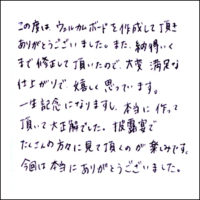 この度は、ウェルカムボードを作成して頂き
ありがとうございました。また、納得いく
まで修正して頂いたので、大変満足な
仕上がりで、嬉しく思っています。
一生記念になりますし、本当に作って
頂いて大正解でした。披露宴で
たくさんの方々に見て頂くのが楽しみです。
今回は本当にありがとうございました。